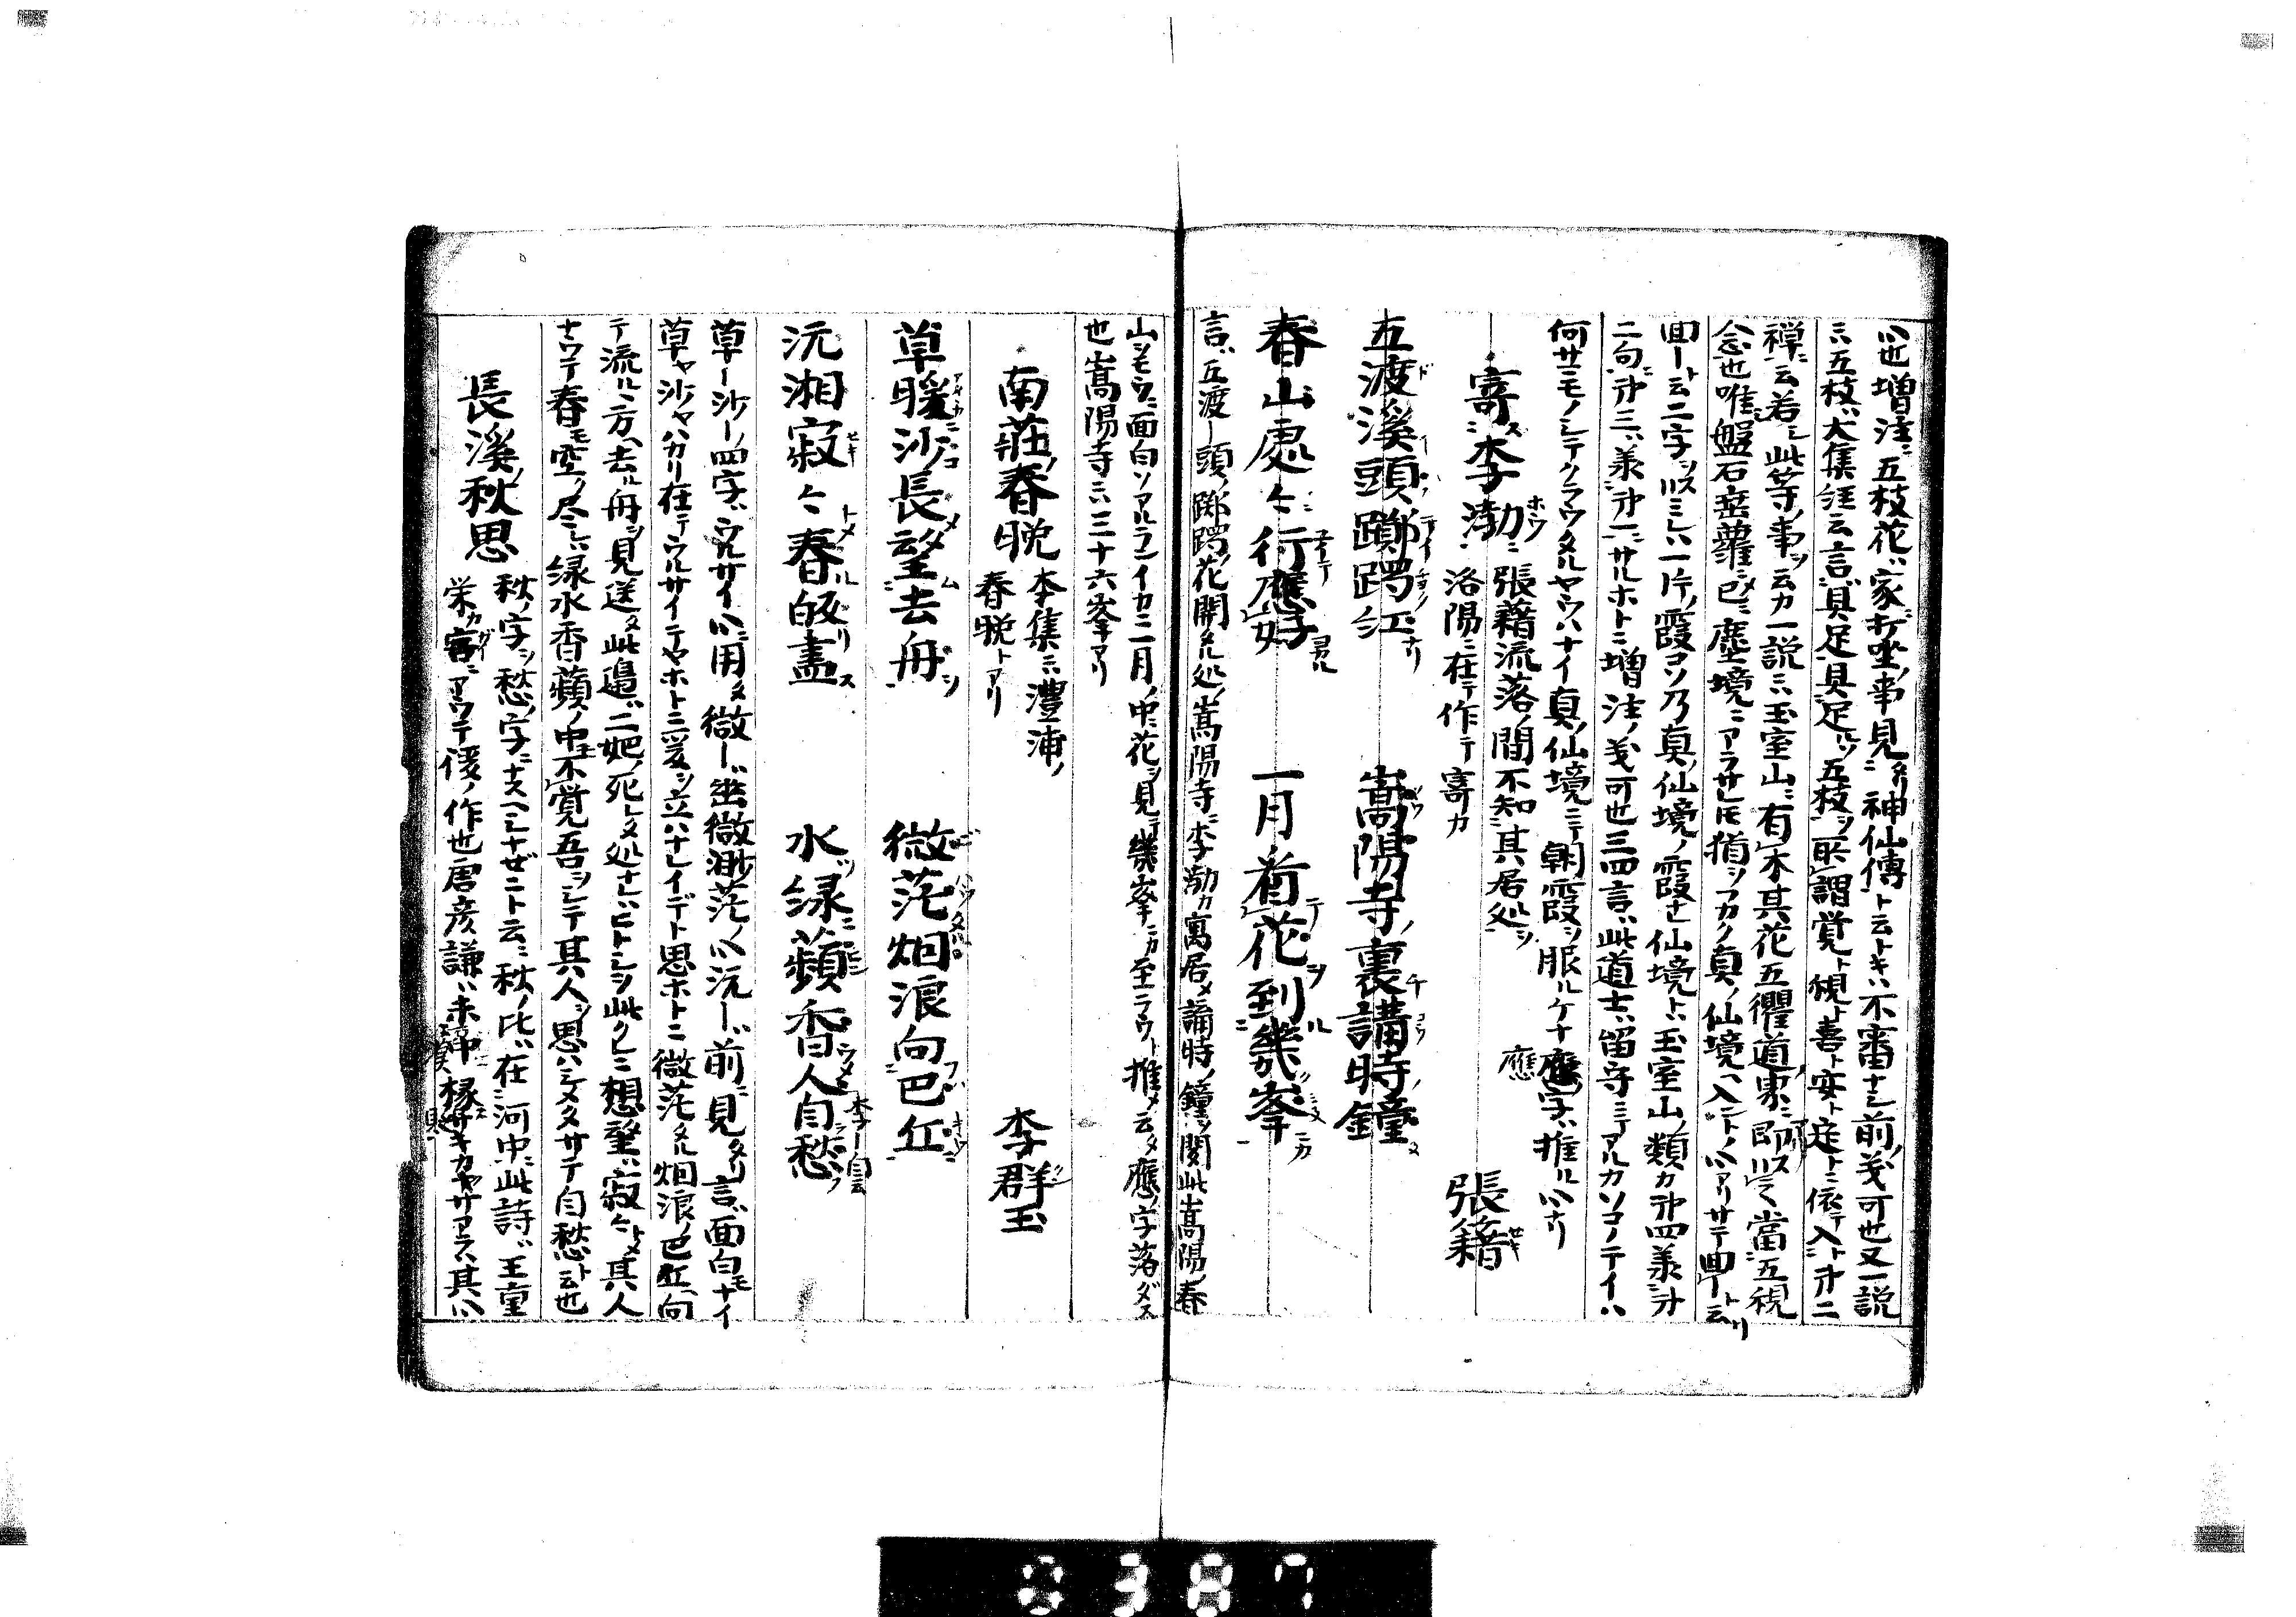 心也増注ニ五枝花ハ家デ坐ノ事見タリ神仙傳ト云トキハ不審ナシ前ノ義可也又一説
ニハ五枝ハ大集経云言ハ具足具足ルソ五枝ヲ所謂覚ト視ト喜ト安ト定トニ依テ入ト才二
禅ニ云若シ此等ノ事ヲ云カ一説ニハ玉室山ニ有木其花五衢道家ニ即以之當五視
念也唯盤石垂蘿ニメ已ニ塵境ニアラサレモ猶ヲフカク真ノ仙境ヘ入ントノ心アリサテ回ート云リ
回ート云二字ヲ以スミレハ一片ノ霞コソ乃真ノ仙境ノ霞ナレ仙境トハ玉室山ノ類カ才四ノ義ニ才
二句ニ才三ハ義才一ニサルホトニ増注ノ義可也三四言ハ此道士ハ留守ニテアルカソコノテイハ
何サモノシテクラウタルヤウハナイ真ノ仙境ニテ朝霞ヲ服ルケナ應ノ字ハ推ル心ナリ
應
寄李渤
張籍流落ノ間不知其居処ヲ
洛陽ニ在テ作テ寄カ
張籍
五渡溪頭躑躅紅 嵩陽寺裏講時鐘
春山處々行應好 一月看花到幾峯
言ハ五渡ー頭ノ躑躅ノ花開タル処ノ嵩陽寺ニ李渤カ寓居メ講時ノ鐘ヲ聞此嵩陽ノ春
山ヲモウニ面白ソアルランイカニ一月ノ中ニ花ヲ見テ幾峯ニカ至ラウト推メ云タ應ノ字落ダス
也嵩陽寺ニハ三十六峯アリ
南莊春晩
李集ニハ澧浦ノ
春晩トアリ
李群玉
草暖沙長望去舟 微茫烟浪向巴丘
沅湘寂々春皈盡 水緑蘋香人自愁
李ー自云
草ー沙ー四字ハウルサイ心ニ用タ微ーハ幽微渺茫ノ心沅ーハ前ニ見タリ言ハ面白モナイ
草ヤ沙ヤハカリ在テウルサイニテヤホトニ爰ヲ立ハナレイデト思ホトニ微茫タル烟浪ノ巴丘ヘ向
テ流ルヽ方ヘ去ル舟ヲ見送タ此邉ハ二妃ノ死レタ処ナレハヒトシヲ此クレニ想望ハ寂々トメ其人
ナウテ春モ空ク尽レハ緑水香蘋ノ中モ不覚吾ヲシテ其人ヲ思ハシメタサテ自愁ト云也
長溪秋思
秋ノ字ヲ愁ノ字ニナスヘシナゼニト云ニ秋ノ比ハ在河中此詩ハ王重
栄カ害ニアウテ後ノ作也唐彦謙ハ